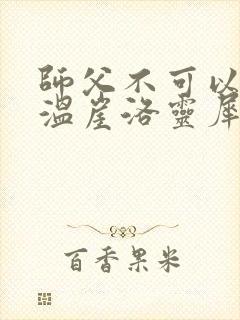 師父不可以
溫崖洛靈犀
百香果米